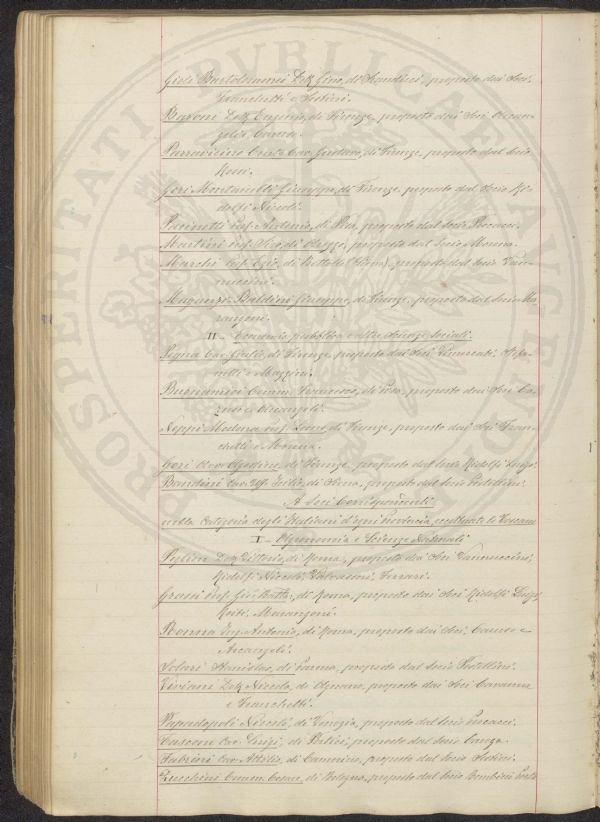 PROSPERITATI PVBLICAE AVGENDAE
Gioli Bartolommei Dott. Gino, di Scandicci, proposto dai Soci
Franchetti e Sestini.
Bassoni Dott. Eugenio, di Firenze, proposto dai Soci Arcan-
geli e Caruso.
Parravicino Conte Cav. Gustavo, di Firenze, proposto dal Socio
Rossi.
Gori Montanelli Giuseppe, di Firenze, proposto dal Socio Ri-
dolfi Niccolò.
Pacinotti Prof. Antonio, di Pisa, proposto dal Socio Pucacci.
Martini Prof. Tito, di proposto dal Socio Monna.
Marchi Prof. Ezio, di Bettolle (Siena), proposto dal Socio Van-
nuccini.
Maganzi Baldini Giuseppe, di Firenze, proposto dal Socio Ma-
rangoni.
II - Economia pubblica e altre scienze sociali.
Pegna Cav. Giulio, di Firenze, proposto dai Soci Stefa-
nelli e Mazzini.
Buonamici Comm. Francesco, di Pisa, proposto dai Soci Ca-
ruso e Arcangeli.
Neppi Modona Prof. Leone, di Firenze, proposto dai Soci Fran-
chetti e Monna.
Gori Avv. Agostino, di Firenze, proposto dal Socio Ridolfi Luigi.
Bandini Cav. Uff. Icilio, di Siena, proposto dal Socio Pestellini.
A Soci Corrispondenti
nella Categoria degli Italiani d'ogni Provincia, eccettuate le Toscane
I - Agronomia e Scienze Naturali
Peglion Dott. Vittorio, di Roma, proposto dai Soci Vannuccini,
Ridolfi Niccolò, Valvassori, Ferrari.
Grassi Prof. Gio. Batta., di Roma, proposto dai Soci Ridolfi Luigi,
Marangoni.
Romna Ing. Antonio, di Roma, proposto dai Soci Caruso e
Arcangeli.
Solari Stanislao, di Parma, proposto dal Socio Pestellini.
Viviani Dott. Niccolò, di proposto dai Soci Cavanna
e Franchetti.
Papadopoli Niccolò, di Venezia, proposto dal Socio Pucacci.
Cav. Luigi, di Portici, proposto dal Socio
Fabrini Cav. Attilio, di Camerino, proposto dal Socio Sestini.
Zucchini Comm. Cesare, di Bologna, proposto dal Socio Bombicci Porta